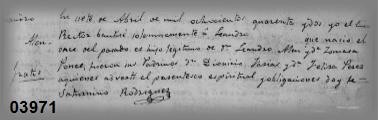 En siete de Abril de mil ochocientos quarenta y dos yo el
Rector bautizé solemnemente á Leandro que nacio el
once del pasado es hijo legitimo de Dn Leandro Alen y Da Tomasa
Ponce, fueron sus Padrinos Dn Dionicio Farias y Da Felisa Ponce
aquienes advertí el parentesco espiritual y obligaciones doy fe
Saturnino Rodriguez
Alen.
gratis
03971